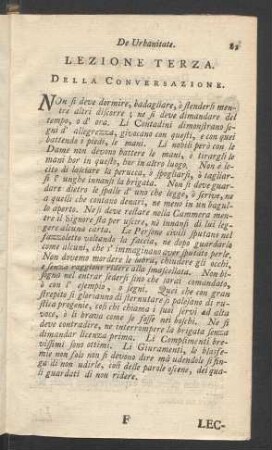 De Urbanitate. 81
LEZIONE TERZA.
DELLA CONVERSAZIONE.
NOn si deve dormire, badagliare, ò stendersi men-
tre altri discorre; ne si deve dimandare del
tempo, o d' ora. Li Contadini dimostrano se-
gni d' allegrezza, givocano con questi, e con quei
battendo i piedi, le mani. Li nobili però con le
Dame non devono battere le mani, ò tirargli le
mani hor in questo, hor in altro luogo. Non è le-
cito di lasciare la perucca, ò spogliarsi, ò tagliar-
si l' unghe innanzi la brigata. Non si deve guar-
dare dietro le spalle d' uno che legge, ò scrive, ne
a quelli che contano denari, ne meno in un bagul-
lo aperto. Ne si deve restare nella Cammera men-
tre il Signore sta per uscire, nè innanzi di lui leg-
gere alcuna carta. Le Persone civili sputano nel
fazzoletto voltando la faccia, ne dopo guardarlo
come alcuni, che s' immaginano aver sputato perle.
Non devemo mordere le labra, chiudere gli occhi,
e senza raggione ridere alla smascellata. Non bi-
sogna nel entrar sedersi sino che sarai comandato,
ò con l' esempio, o segni. Quei che con gran
strepito si gloriano di starnutare si palesano di ru-
stica progenie, così chi chiama i suoi servi ad alta
voce, ò li brava come se fosse nei boschi. Ne si
deve contradire, ne interrompere la brigata senza
dimandar licenza prima. Li Complimenti bre-
vissimi sono ottimi. Li Giuramenti, le biasfe-
mie non solo non si devono dire mà udendole si fin-
ga di non udirle, così delle parole oscene, dei qua-
li guardati di non ridere.
F LEC-